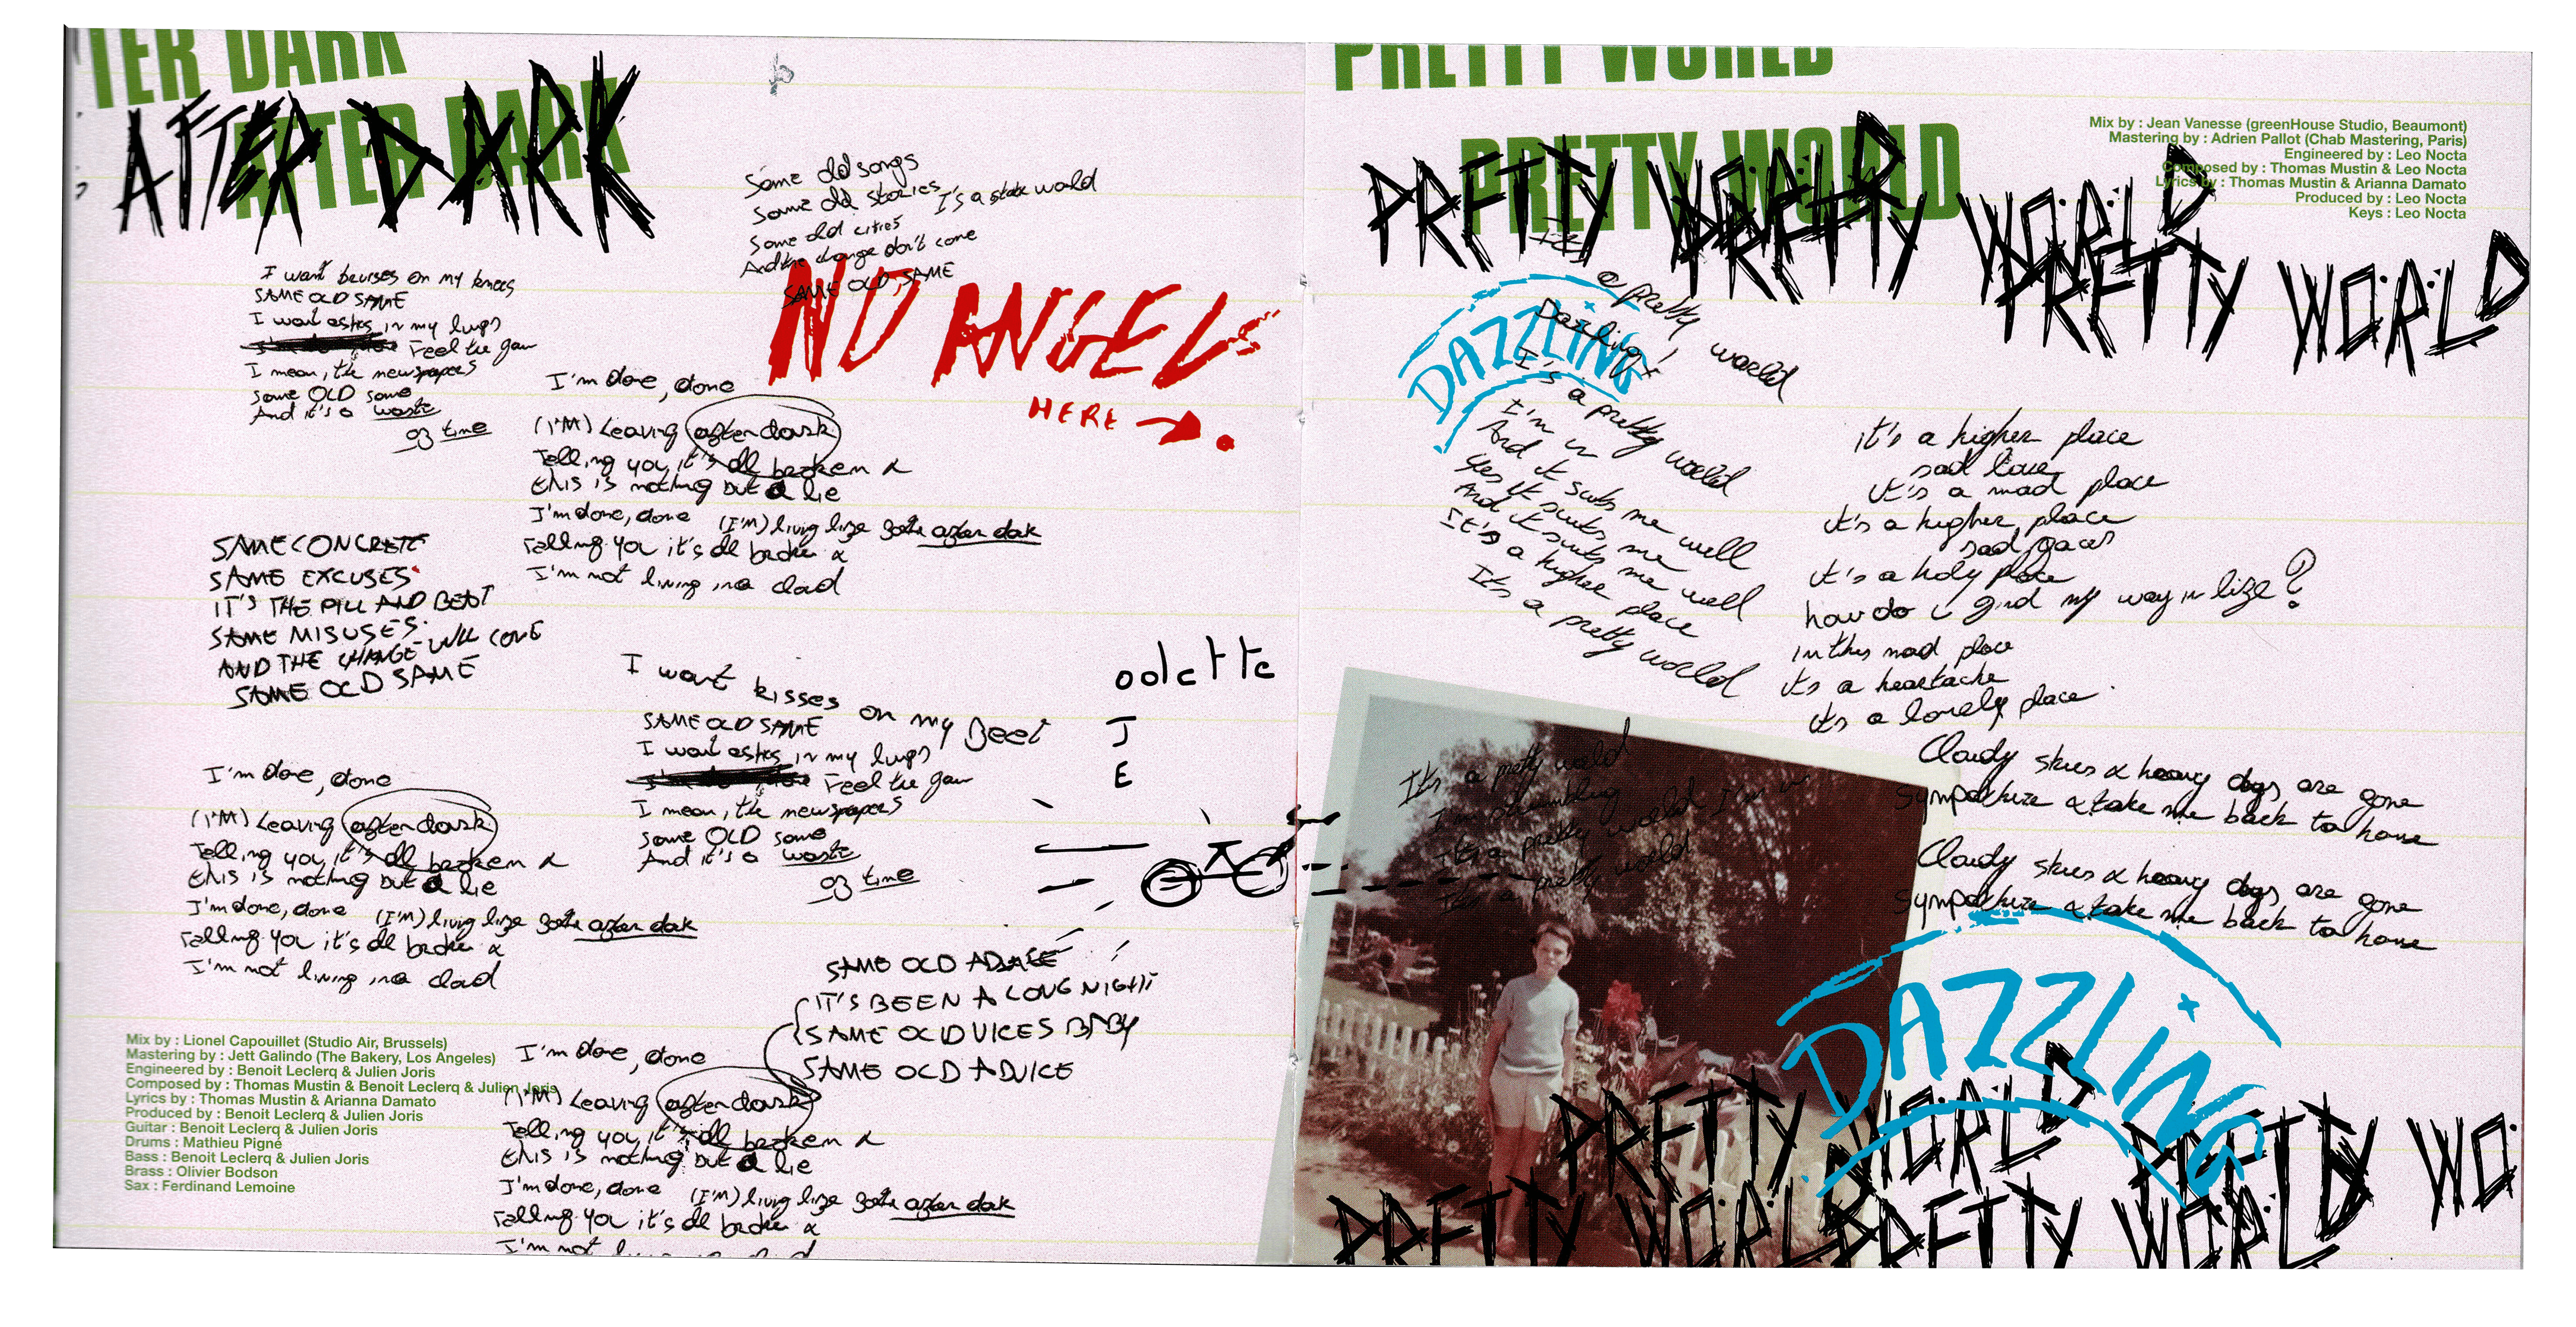 TER DARK
AFTER DARK
AFTER DARK
I want bruises on my knees
SAME OLD SAME
I want ashes in my lungs
Feel the
I mean, the newspapers
same OLD same
And it's a waste
of time
Same old songs
Same old stories
It's a state world
Same old cities
And the change don't come
SAME OLD SAME
NO ANGELS
HERE
I'm done, done
(I'M) Leaving after dark
Telling you it's all broken &
this is nothing but a lie
I'm done, done (I'm) living life after dark
Telling you it's all broken &
I'm not living in a
SAME CONCRETE
SAME EXCUSES
IT'S THE PILL AND
SAME MISUSES
AND THE CHANGE WILL COME
SAME OLD SAME
I want kisses on my feet
SAME OLD SAME
I want ashes in my lungs
Feel the
I mean, the newspapers
same OLD same
And it's a waste
of time
odette
J
E
I'm done, done
(I'M) Leaving after dark
Telling you it's all broken &
this is nothing but a lie
I'm done, done (I'm) living life after dark
Telling you it's all broken &
I'm not living in a
SAME OLD
IT'S BEEN A LONG NIGHT
SAME OLD VICES BABY
SAME OLD ADVICE
Mix by : Lionel Capouillet (Studio Air, Brussels)
Mastering by : Jett Galindo (The Bakery, Los Angeles)
Engineered by : Benoit Leclerq & Julien Joris
Composed by : Thomas Mustin & Benoit Leclerq & Julien Joris
Lyrics by : Thomas Mustin & Arianna Damato
Produced by : Benoit Leclerq & Julien Joris
Guitar : Benoit Leclerq & Julien Joris
Drums : Mathieu Pigné
Bass : Benoit Leclerq & Julien Joris
Brass : Olivier Bodson
Sax : Ferdinand Lemoine
I'm done, done
(I'M) Leaving after dark
Telling you it's all broken &
this is nothing but a lie
I'm done, done (I'm) living life after dark
Telling you it's all broken &
I'm not
PRETTY WORLD
PRETTY WORLD
PRETTY WORLD PRETTY WORLD PRETTY WORLD
Mix by : Jean Vanesse (greenHouse Studio, Beaumont)
Mastering by : Adrien Pallot (Chab Mastering, Paris)
Engineered by : Leo Nocta
Composed by : Thomas Mustin & Leo Nocta
Lyrics by : Thomas Mustin & Arianna Damato
Produced by : Leo Nocta
Keys : Leo Nocta
DAZZLING
It's a pretty world
Dazzling!
It's a pretty world
I'm in
And it suits me well
Yes it suits me
And it suits me well
It's a higher place
It's a pretty world
it's a higher place
sad love
it's a mad place
it's a higher place
sad faces
it's a holy place
how do i find my way in life?
in this mad place
it's a heartache
it's a lonely place
Cloudy skies & heavy days are gone
Sympathize & take me back to home
Cloudy skies & heavy days are gone
Sympathize & take me back to home
It's a pretty world
I'm stumbling
It's a pretty world I'm in
It's a pretty world
DAZZLING
PRETTY WORLD PRETTY WO
PRETTY WORLD PRETTY WORLD